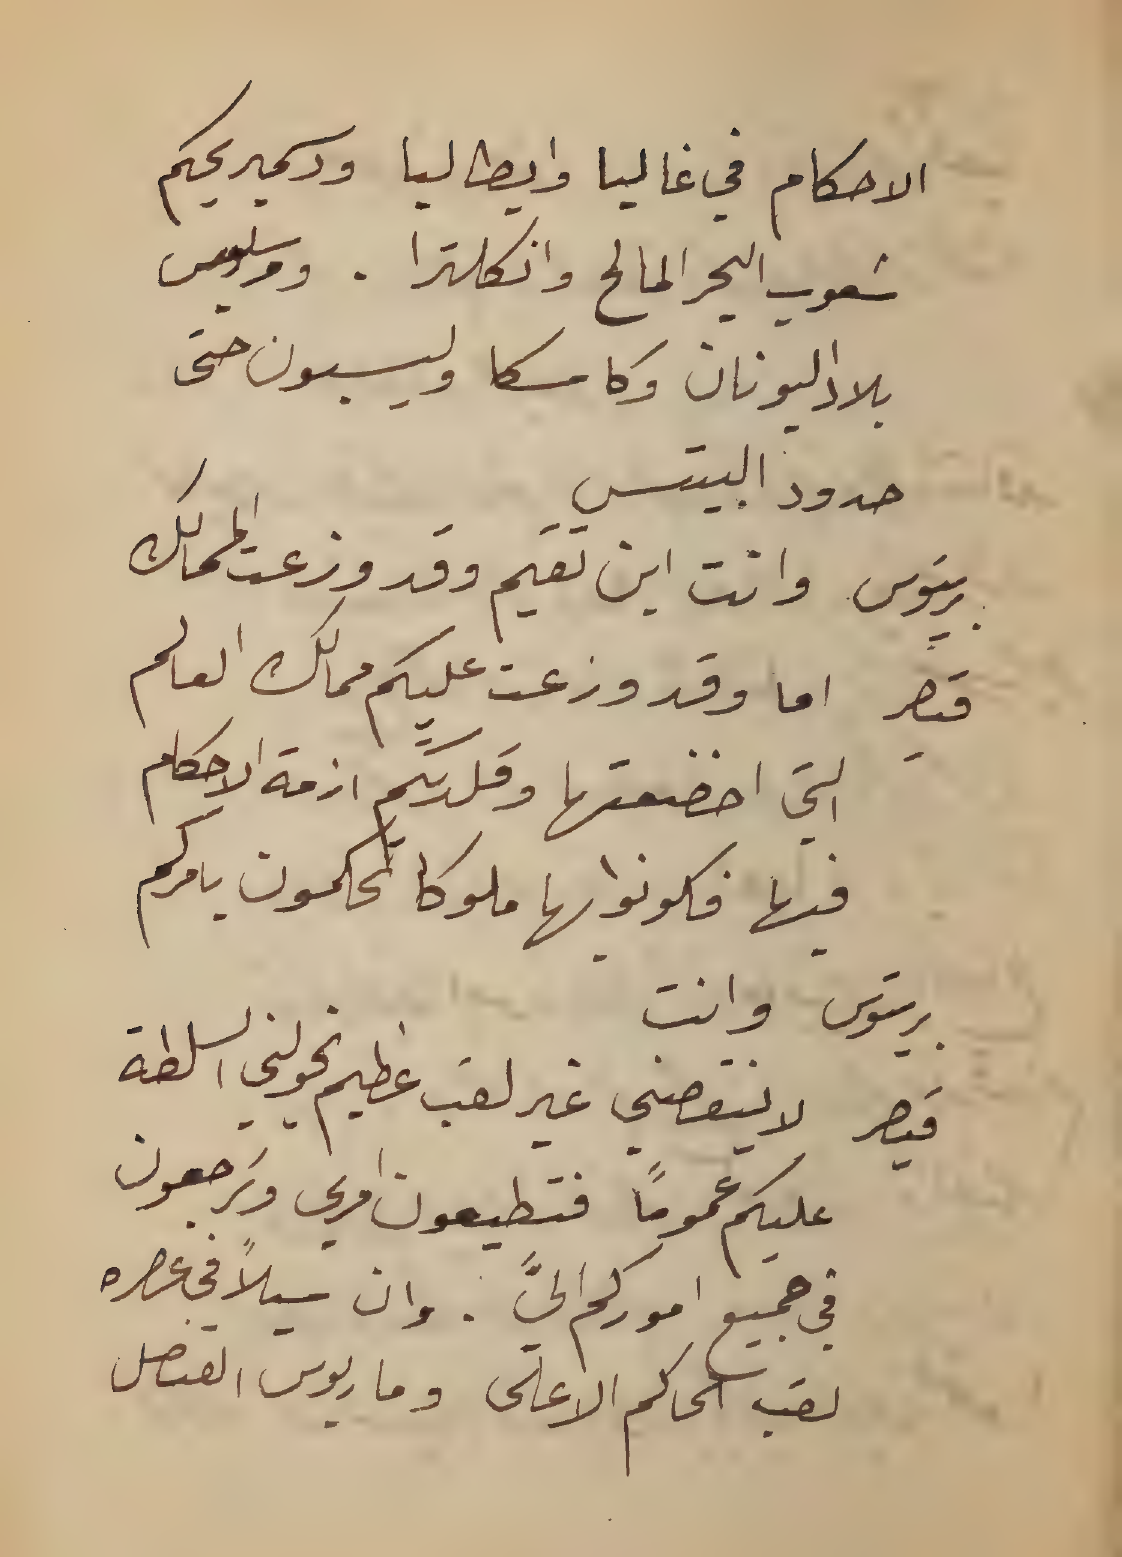 الاحكام في غاليا وايطاليا ودسمير يحكم
شعوب البحر المالح وانكلترا .
بلاد اليونان وكاسكا وليسبون حتى
حدود البيتس
بريتوس وانت اين تقيم وقد وزعت الممالك
قيصر اما وقد وزعت عليكم ممالك العالم
التي اخضعتها وقلدتكم ازمة الاحكام
فيها فكونوا بها ملوكا تحكمون بامركم
بريتوس وانت
قيصر لا ينقصني غير لقب عظيم يخولني السلطة
عليكم عمومًا فتطيعون امري وترجعون
في جميع اموركم اليَّ . وان سيلاً في عصره
لقب الحاكم الاعلى وماريوس القنصل